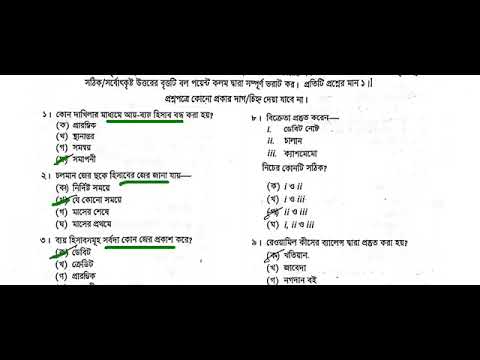 সঠিক/সর্বোৎকৃষ্ট উত্তরের বৃত্তটি বল পয়েন্ট কলম দ্বারা সম্পূর্ণ ভরাট কর। প্রতিটি প্রশ্নের মান ১।]
প্রশ্নপত্রে কোনো প্রকার দাগ/চিহ্ন দেয়া যাবে না।
১। কোন দাখিলার মাধ্যমে আয়-ব্যয় হিসাব বন্ধ করা হয়?
(ক) প্রারম্ভিক
(খ) স্থানান্তর
(গ) সমন্বয়
(ঘ) সমাপনী
২। চলমান জের ছকে হিসাবের জের জানা যায়—
(ক) নির্দিষ্ট সময়ে
(খ) যে কোনো সময়ে
(গ) মাসের শেষে
(ঘ) মাসের প্রথমে
৩। ব্যয় হিসাবসমূহ সর্বদা কোন জের প্রকাশ করে?
(ক) ডেবিট
(খ) ক্রেডিট
(গ) প্রারম্ভিক
৮। বিক্রেতা প্রস্তুত করেন—
i. ডেবিট নোট
ii. চালান
iii. ক্যাশমেমো
নিচের কোনটি সঠিক?
(ক) i ও ii
(খ) i ও iii
(গ) ii ও iii
(ঘ) i, ii ও iii
৯। রেওয়ামিল কীসের ব্যালেন্স দ্বারা প্রস্তুত করা হয়?
(ক) খতিয়ান
(খ) জাবেদা
(গ) নগদান বই